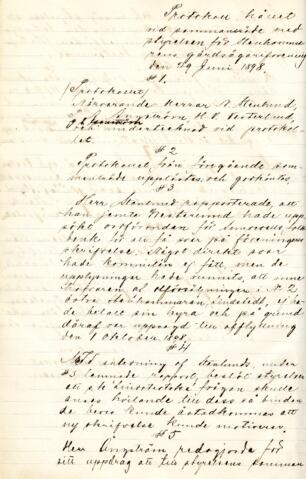 Protokoll hållet
vid sammanträde med
styrelsen för Stenhammarens
gårdsägareförening
den 29 Juni 1898.
§ 1.
Protokollet
Närvarande Herrar N. Stenlund,
H. V. Vesterlund,
och undertecknad vid protokol-
let.
§ 2
Protokollet från föregående sam-
manträde upplästes, och godkäntes.
§ 3
Herr Stenlund rapporterade, att
han jemte Vesterlund hade upp-
sökt ordföranden för
för att få svar på föreningens
skrifvelse. Något direkt svar
hade kommitén ej fått, men de
upplysningar hade vunnits, att inne-
hafvaren af i N:o 2
Östra
de betalt sin hyra och på grund
däraf var uppsagd till afflyttning
den 1 Oktober 1898.
§ 4
Med anledning af Stenlunds, under
§ 3 lemnade rapport, beslöt styrelsen
att frågan skulle
anses hvilande till dess så bindan-
de bevis kunde åstadkommas att
ny skrifvelse kunde motiveras.
§ 5
Herr Ångström redogjorde för
sitt uppdrag att till styrelsens samman-